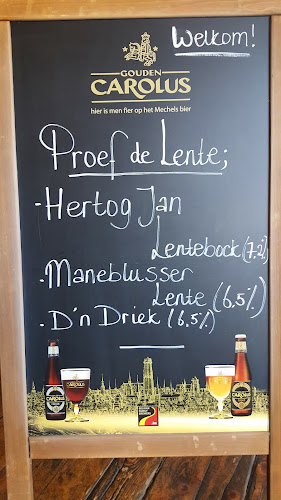 Welkom!
GOUDEN
CAROLUS
hier is men fier op het Mechels bier
Proef de Lente;
·Hertog Jan
Lentebock (7.2%)
·Maneblusser
Lente (6,5%)
·D'n Driek (6,5%)
CAROLUS
CAROLUS